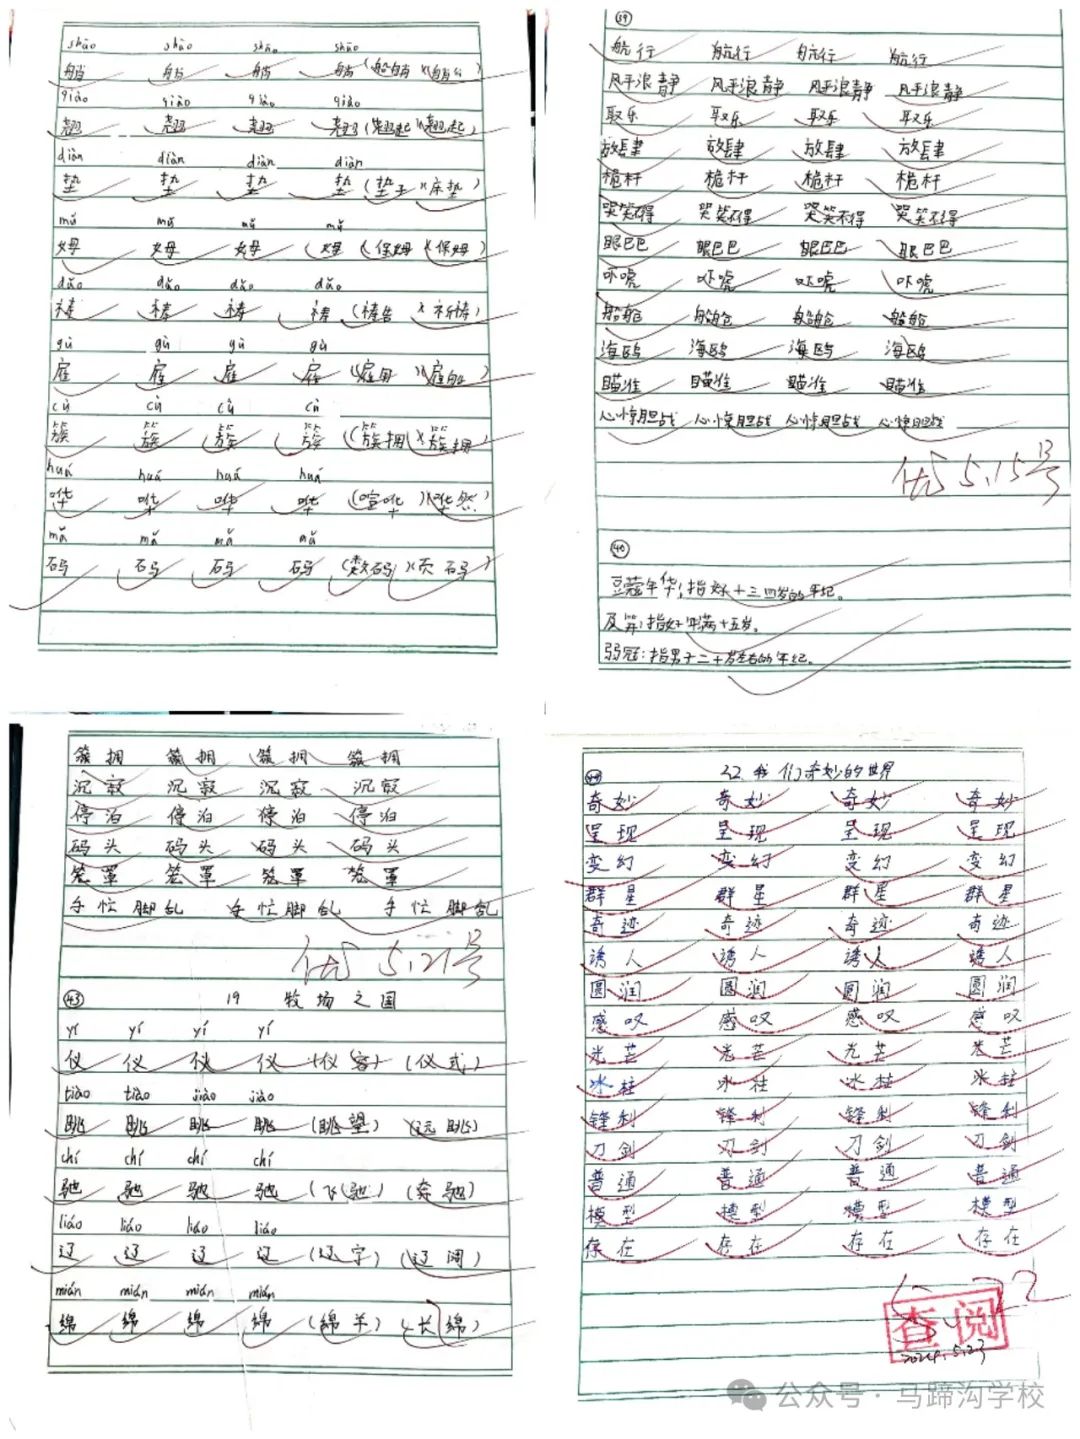 shāo shāo shāo shāo
艄 艄 艄 艄 (船艄)(艄公)
qiào qiào qiào qiào
翘 翘 翘 翘 (翘起)(翘起)
diàn diàn diàn diàn
垫 垫 垫 垫 (垫子)(床垫)
mǔ mǔ mǔ mǔ
姆 姆 姆 姆 (保姆)(保姆)
dǎo dǎo dǎo dǎo
祷 祷 祷 祷 (祷告)(祈祷)
gù gù gù gù
雇 雇 雇 雇 (雇用)(雇船)
cù cù cù cù
簇 簇 簇 簇 (簇拥)(簇拥)
huá huá huá huá
哗 哗 哗 哗 (喧哗)(哗然)
mǎ mǎ mǎ mǎ
码 码 码 码 (数码)(页码)
39
航行 航行 航行 航行
风平浪静 风平浪静 风平浪静 风平浪静
取乐 取乐 取乐 取乐
放肆 放肆 放肆 放肆
桅杆 桅杆 桅杆 桅杆
哭笑不得 哭笑不得 哭笑不得 哭笑不得
眼巴巴 眼巴巴 眼巴巴 眼巴巴
吓唬 吓唬 吓唬 吓唬
船舱 船舱 船舱 船舱
海鸥 海鸥 海鸥 海鸥
瞄准 瞄准 瞄准 瞄准
心惊胆战 心惊胆战 心惊胆战 心惊胆战
优 5.15号
㊵
豆蔻年华:指女子十三四岁的年纪。
及笄:指女子年满十五岁。
弱冠:指男子二十岁左右的年纪。
簇拥 簇拥 簇拥 簇拥
沉寂 沉寂 沉寂 沉寂
停泊 停泊 停泊 停泊
码头 码头 码头 码头
笼罩 笼罩 笼罩 笼罩
手忙脚乱 手忙脚乱 手忙脚乱
优 5.21号
㊸ 19 牧场之国
yí yí yí yí
仪 仪 仪 仪 (仪容) (仪式)
tiào tiào jiào jiào
眺 眺 眺 眺 (眺望) (远眺)
chí chí chí chí
驰 驰 驰 驰 (飞驰) (奔驰)
liáo liáo liáo liáo
辽 辽 辽 辽 (辽宁) (辽阔)
mián mián mián mián
绵 绵 绵 绵 (绵羊) (长绵)
㊹ 22、我们奇妙的世界
奇妙 奇妙 奇妙 奇妙
呈现 呈现 呈现 呈现
变幻 变幻 变幻 变幻
群星 群星 群星 群星
奇迹 奇迹 奇迹 奇迹
诱人 诱人 诱人 诱人
圆润 圆润 圆润 圆润
感叹 感叹 感叹 感叹
光芒 光芒 光芒 光芒
冰柱 冰柱 冰柱 冰柱
锋利 锋利 锋利 锋利
刀剑 刀剑 刀剑 刀剑
普通 普通 普通 普通
模型 模型 模型 模型
存在 存在 存在 存在
查阅
2024.5.23
公众号·马蹄沟学校